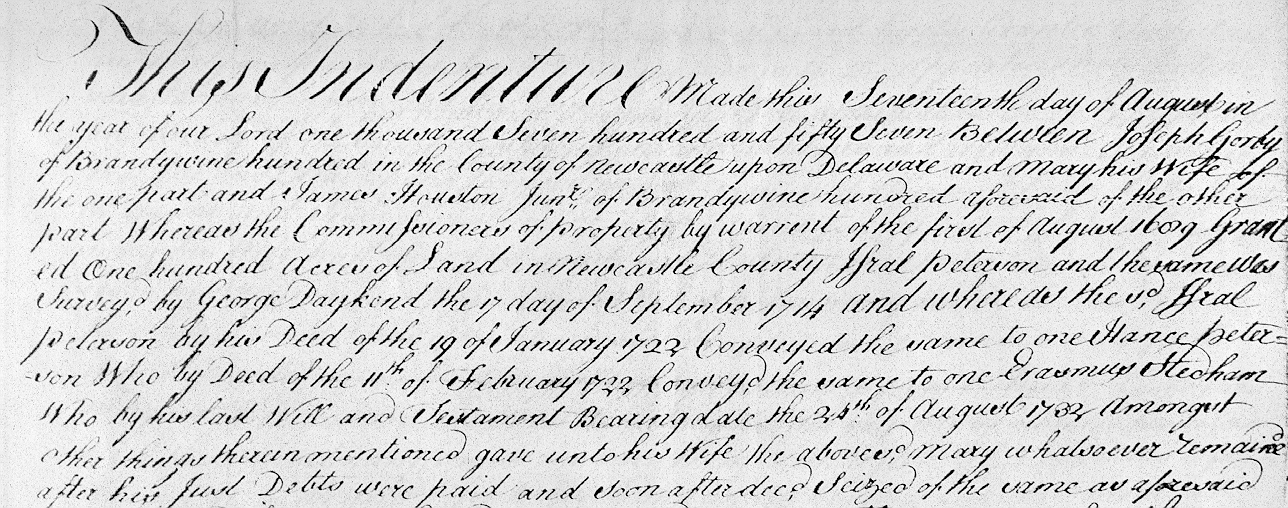 This Indenture Made this Seventeenth day of August in
the year of our Lord one thousand Seven hundred and fifty Seven Between Joseph Gorby
of Brandywine hundred in the County of Newcastle upon Delaware and Mary his Wife of
the one part and James Houston Junr. of Brandywine hundred aforesaid of the other
part Whereas the Commissioners of property by warrent of the first of August Grant
ed One hundred Acres of Land in Newcastle County Isral Peterson and the same Was
Survey'd by George Daykend the 17 day of September 1714 and whereas the sd. Isral
Peterson by his Deed of the 19 of January 1722 Conveyed the same to one Hance Peter=
=son Who by Deed of the 11th of February 1722 Convey'd the same to one Erasmus Stedham
Who by his last Will and Testament Bearing date the 24th of August 1732 Amongst
other things therein mentioned gave unto his Wife the abovesd. Mary whatsoever remained
after his Just Debts were paid and soon after decd. Seized of the same as aforesaid